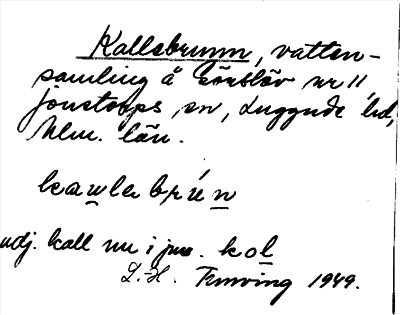 Kallebrunn, vatten-
samling å Görslöv nr 11
Jonstorps sn, Luggude hd,
Mlm. län.
kawlebrún
adj. kall nu i jns. kol
L.-H. Ternving 1949.